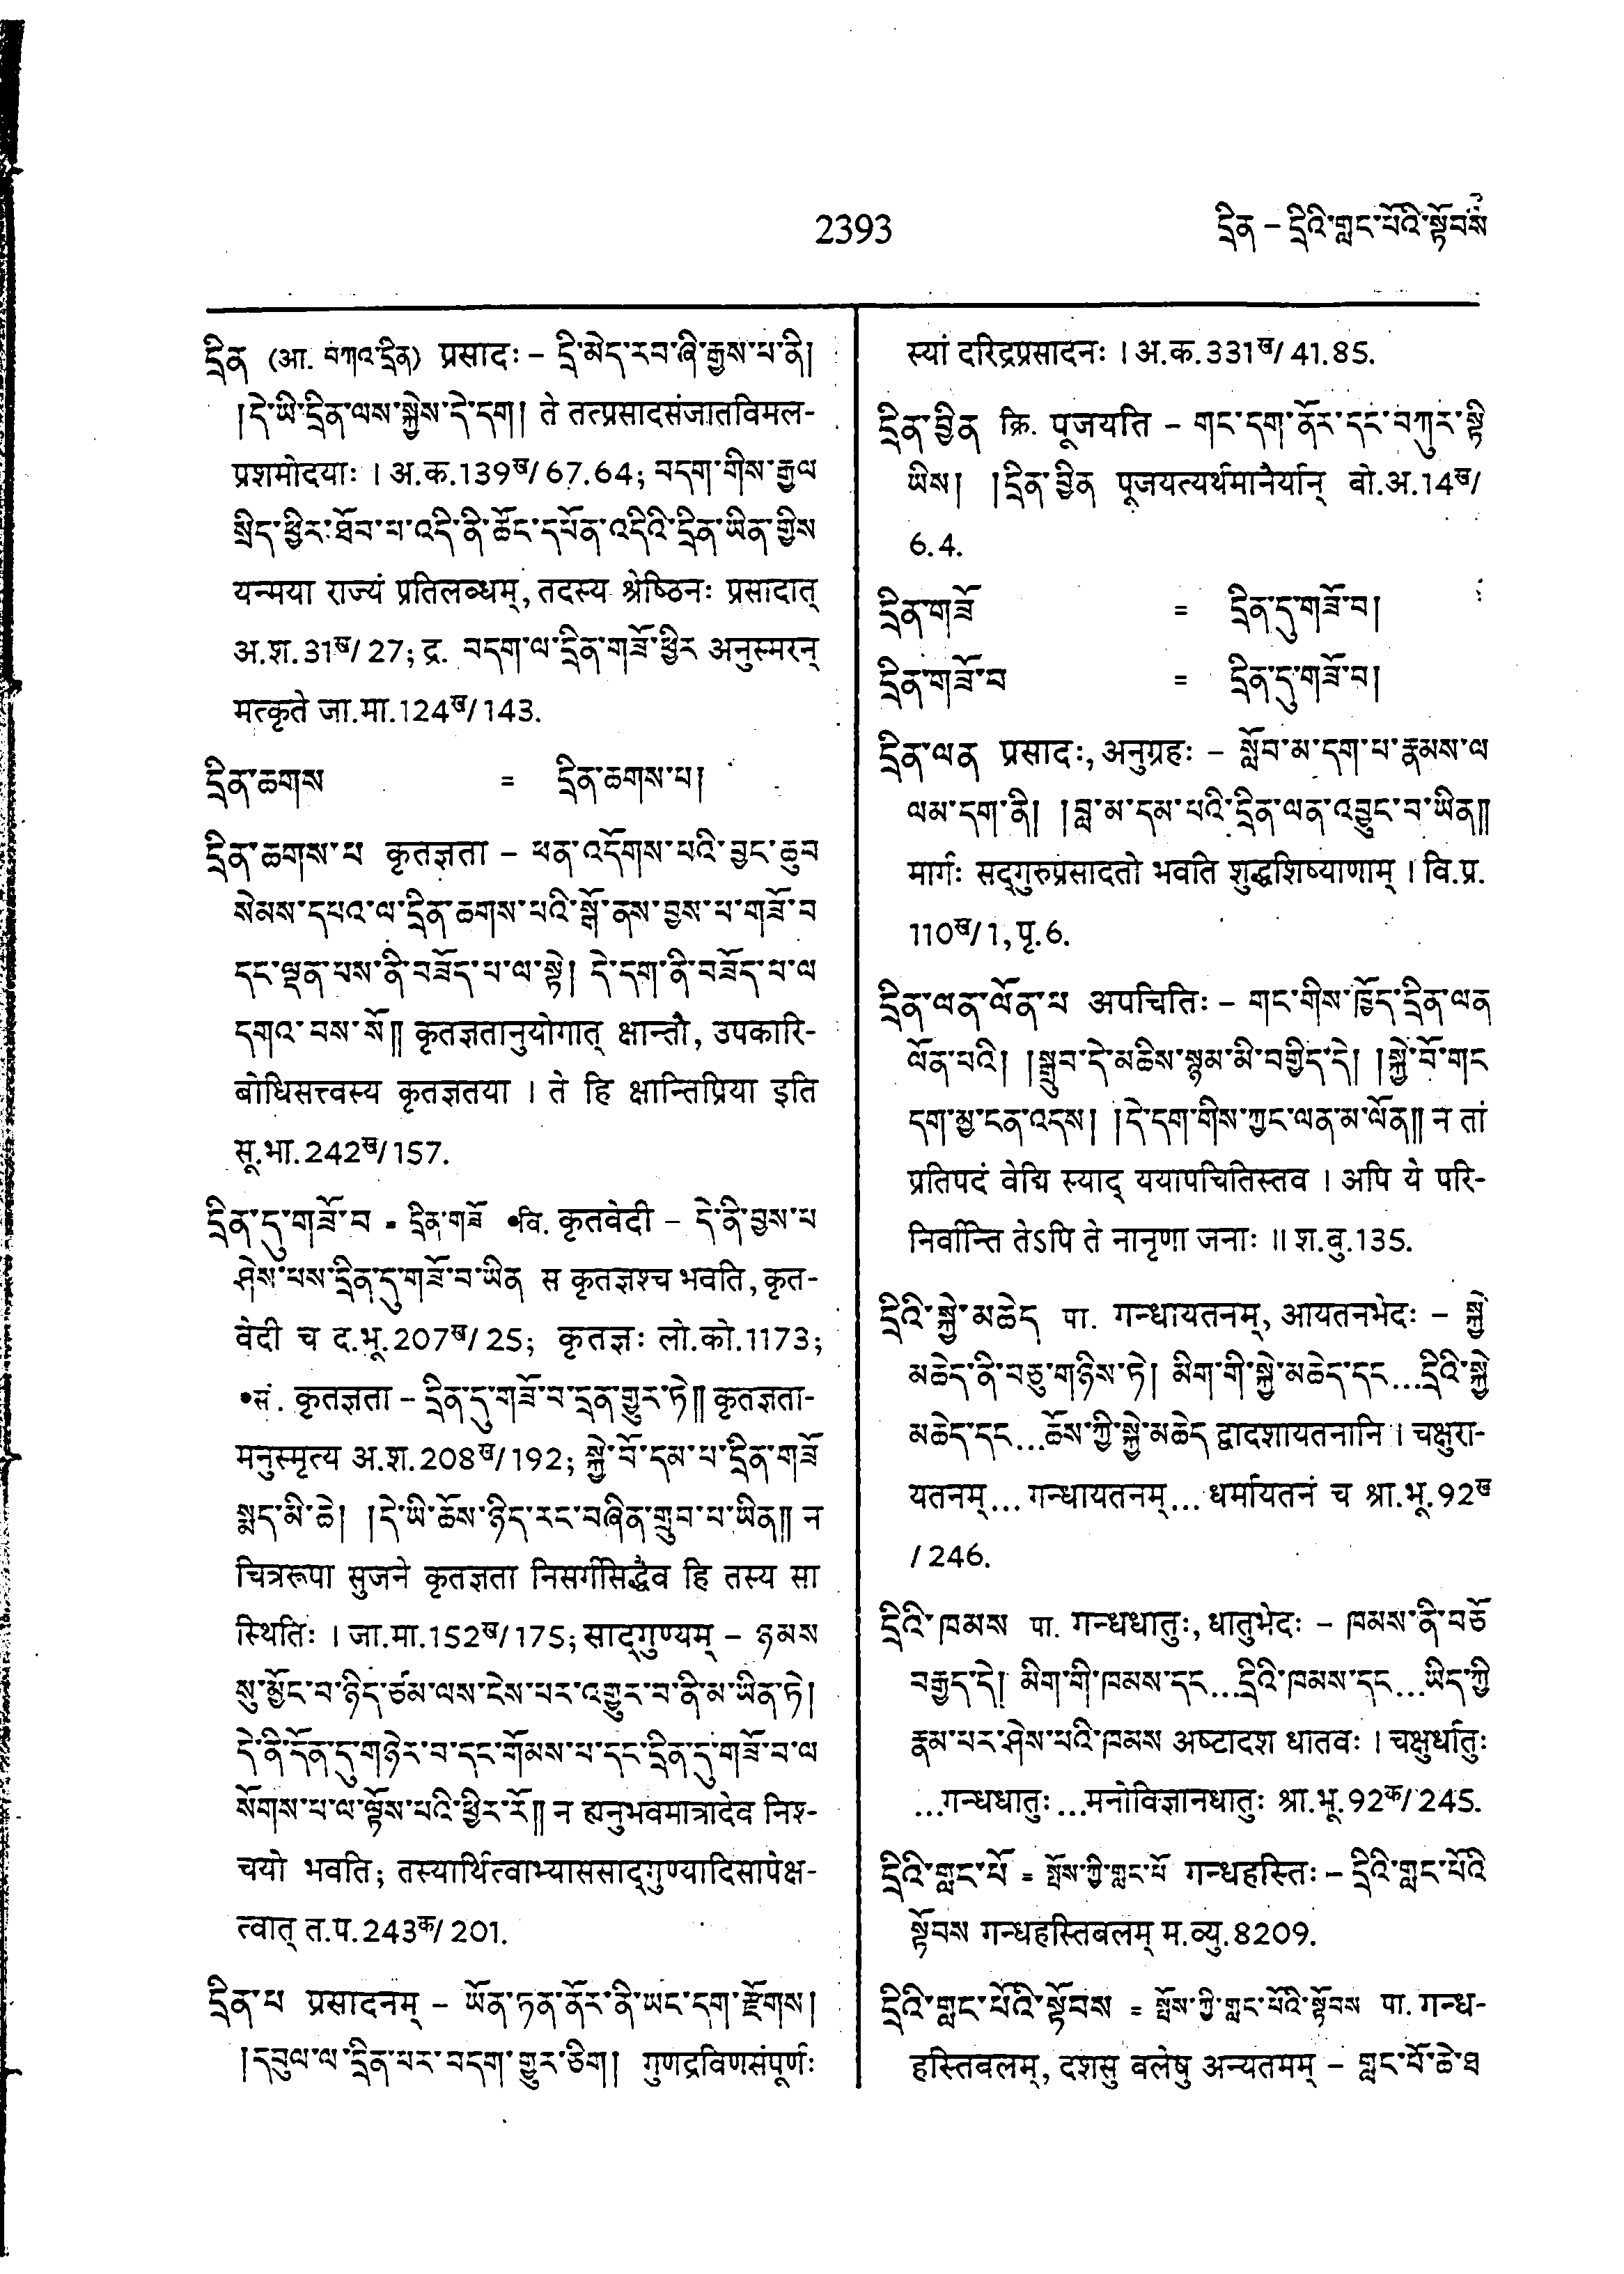 2393
དྲིན – དྲིའི་གླང་པོའི་སྟོབས
དྲིན (आ. བཀའ་དྲིན) प्रसादः – དྲི་མེད་རབ་ཞི་རྒྱས་པ་ནི།
།དེ་ཡི་དྲིན་ལས་སྐྱེས་དེ་དག། ते तत्प्रसादसंजातविमल-
प्रशमोदयाः । अ.क.139ख/67.64; བདག་གིས་རྒྱལ
སྲིད་ཕྱིར་ཐོབ་པ་འདི་ནི་ཚོང་དཔོན་འདིའི་དྲིན་ཡིན་གྱིས
यन्मया राज्यं प्रतिलब्धम्, तदस्य श्रेष्ठिनः प्रसादात्
अ.श.31ख/27; द्र. བདག་ལ་དྲིན་གཟོ་ཕྱིར अनुस्मरन्
मत्कृते जा.मा.124ख/143.
དྲིན་ཆགས = དྲིན་ཆགས་པ།
དྲིན་ཆགས་པ कृतज्ञता – ཕན་འདོགས་པའི་བྱང་ཆུབ
སེམས་དཔའ་ལ་དྲིན་ཆགས་པའི་སྒོ་ནས་བྱས་པ་གཟོ་བ
དང་ལྡན་པས་ནི་བཟོད་པ་ལ་སྟེ། དེ་དག་ནི་བཟོད་པ་ལ
དགའ་བས་སོ།། कृतज्ञतानुयोगात् क्षान्तौ, उपकारि-
बोधिसत्त्वस्य कृतज्ञतया । ते हि क्षान्तिप्रिया इति
सू.भा.242ख/157.
དྲིན་དུ་གཟོ་བ ▪ དྲིན་གཟོ •वि. कृतवेदी – དེ་ནི་བྱས་པ
ཤེས་པས་དྲིན་དུ་གཟོ་བ་ཡིན स कृतज्ञश्च भवति, कृत-
वेदी च द.भू.207ख/25; कृतज्ञः लो.को.1173;
•सं. कृतज्ञता – དྲིན་དུ་གཟོ་བ་དྲན་གྱུར་ཏེ།། कृतज्ञता-
मनुस्मृत्य अ.श.208ख/192; སྐྱེ་བོ་དམ་པ་དྲིན་གཟོ
སྨད་མི་ཆེ། །དེ་ཡི་ཆོས་ཉིད་རང་བཞིན་གྲུབ་པ་ཡིན།། न
चित्ररूपा सुजने कृतज्ञता निसर्गसिद्धैव हि तस्य सा
स्थितिः । जा.मा.152ख/175; साद्गुण्यम् – ཉམས
སུ་མྱོང་བ་ཉིད་ཙམ་ལས་ངེས་པར་འགྱུར་བ་ནི་མ་ཡིན་ཏེ།
དེ་ནི་དོན་དུ་གཉེར་བ་དང་གོམས་པ་དང་དྲིན་དུ་གཟོ་བ་ལ
སོགས་པ་ལ་ལྟོས་པའི་ཕྱིར་རོ།། न ह्यनुभवमात्रादेव निश्-
चयो भवति; तस्यार्थित्वाभ्याससाद्गुण्यादिसापेक्ष-
त्वात् त.प.243क/201.
དྲིན་པ प्रसादनम् – ཡོན་ཏན་ནོར་ནི་ཡང་དག་རྫོགས།
།དབུལ་ལ་དྲིན་པར་བདག་གྱུར་ཅིག། गुणद्रविणसंपूर्णः
स्यां दरिद्रप्रसादनः । अ.क.331ख/41.85.
དྲིན་བྱིན क्रि. पूजयति – གང་དག་ནོར་དང་བཀུར་སྟི
ཡིས། །དྲིན་བྱིན पूजयत्यर्थमानैर्यान् बो.अ.14ख/
6.4.
དྲིན་གཟོ = དྲིན་དུ་གཟོ་བ།
དྲིན་གཟོ་བ = དྲིན་དུ་གཟོ་བ།
དྲིན་ལན प्रसादः, अनुग्रहः – སློབ་མ་དག་པ་རྣམས་ལ
ལམ་དག་ནི། །བླ་མ་དམ་པའི་དྲིན་ལན་འབྱུང་བ་ཡིན།།
मार्गः सद्गुरुप्रसादतो भवति शुद्धशिष्याणाम् । वि.प्र.
110ख/1, पृ.6.
དྲིན་ལན་ལོན་པ अपचितिः – གང་གིས་ཁྱོད་དྲིན་ལན
ལོན་པའི། །སྒྲུབ་དེ་མཆིས་སྙམ་མི་བགྱིད་དེ། །སྐྱེ་བོ་གང
དག་མྱ་ངན་འདས། །དེ་དག་གིས་ཀྱང་ལན་མ་ལོན།། न तां
प्रतिपदं वेद्मि स्याद् ययापचितिस्तव । अपि ये परि-
निर्वान्ति तेऽपि ते नानृणा जनाः ॥ श.बु.135.
དྲིའི་སྐྱེ་མཆེད पा. गन्धायतनम्, आयतनभेदः – སྐྱེ
མཆེད་ནི་བཅུ་གཉིས་ཏེ། མིག་གི་སྐྱེ་མཆེད་དང...དྲིའི་སྐྱེ
མཆེད་དང...ཆོས་ཀྱི་སྐྱེ་མཆེད द्वादशायतनानि । चक्षुरा-
यतनम्... गन्धायतनम्... धर्मायतनं च श्रा.भू.92ख
/246.
དྲིའི་ཁམས पा. गन्धधातुः, धातुभेदः – ཁམས་ནི་བཅོ
བརྒྱད་དེ། མིག་གི་ཁམས་དང...དྲིའི་ཁམས་དང...ཡིད་ཀྱི
རྣམ་པར་ཤེས་པའི་ཁམས अष्टादश धातवः । चक्षुर्धातुः
...गन्धधातुः...मनोविज्ञानधातुः श्रा.भू.92क/245.
དྲིའི་གླང་པོ = སྤོས་ཀྱི་གླང་པོ गन्धहस्तिः – དྲིའི་གླང་པོའི
སྟོབས गन्धहस्तिबलम् म.व्यु.8209.
དྲིའི་གླང་པོའི་སྟོབས = སྤོས་ཀྱི་གླང་པོའི་སྟོབས पा. गन्ध-
हस्तिबलम्, दशसु बलेषु अन्यतमम् – གླང་པོ་ཆེ་ཐ